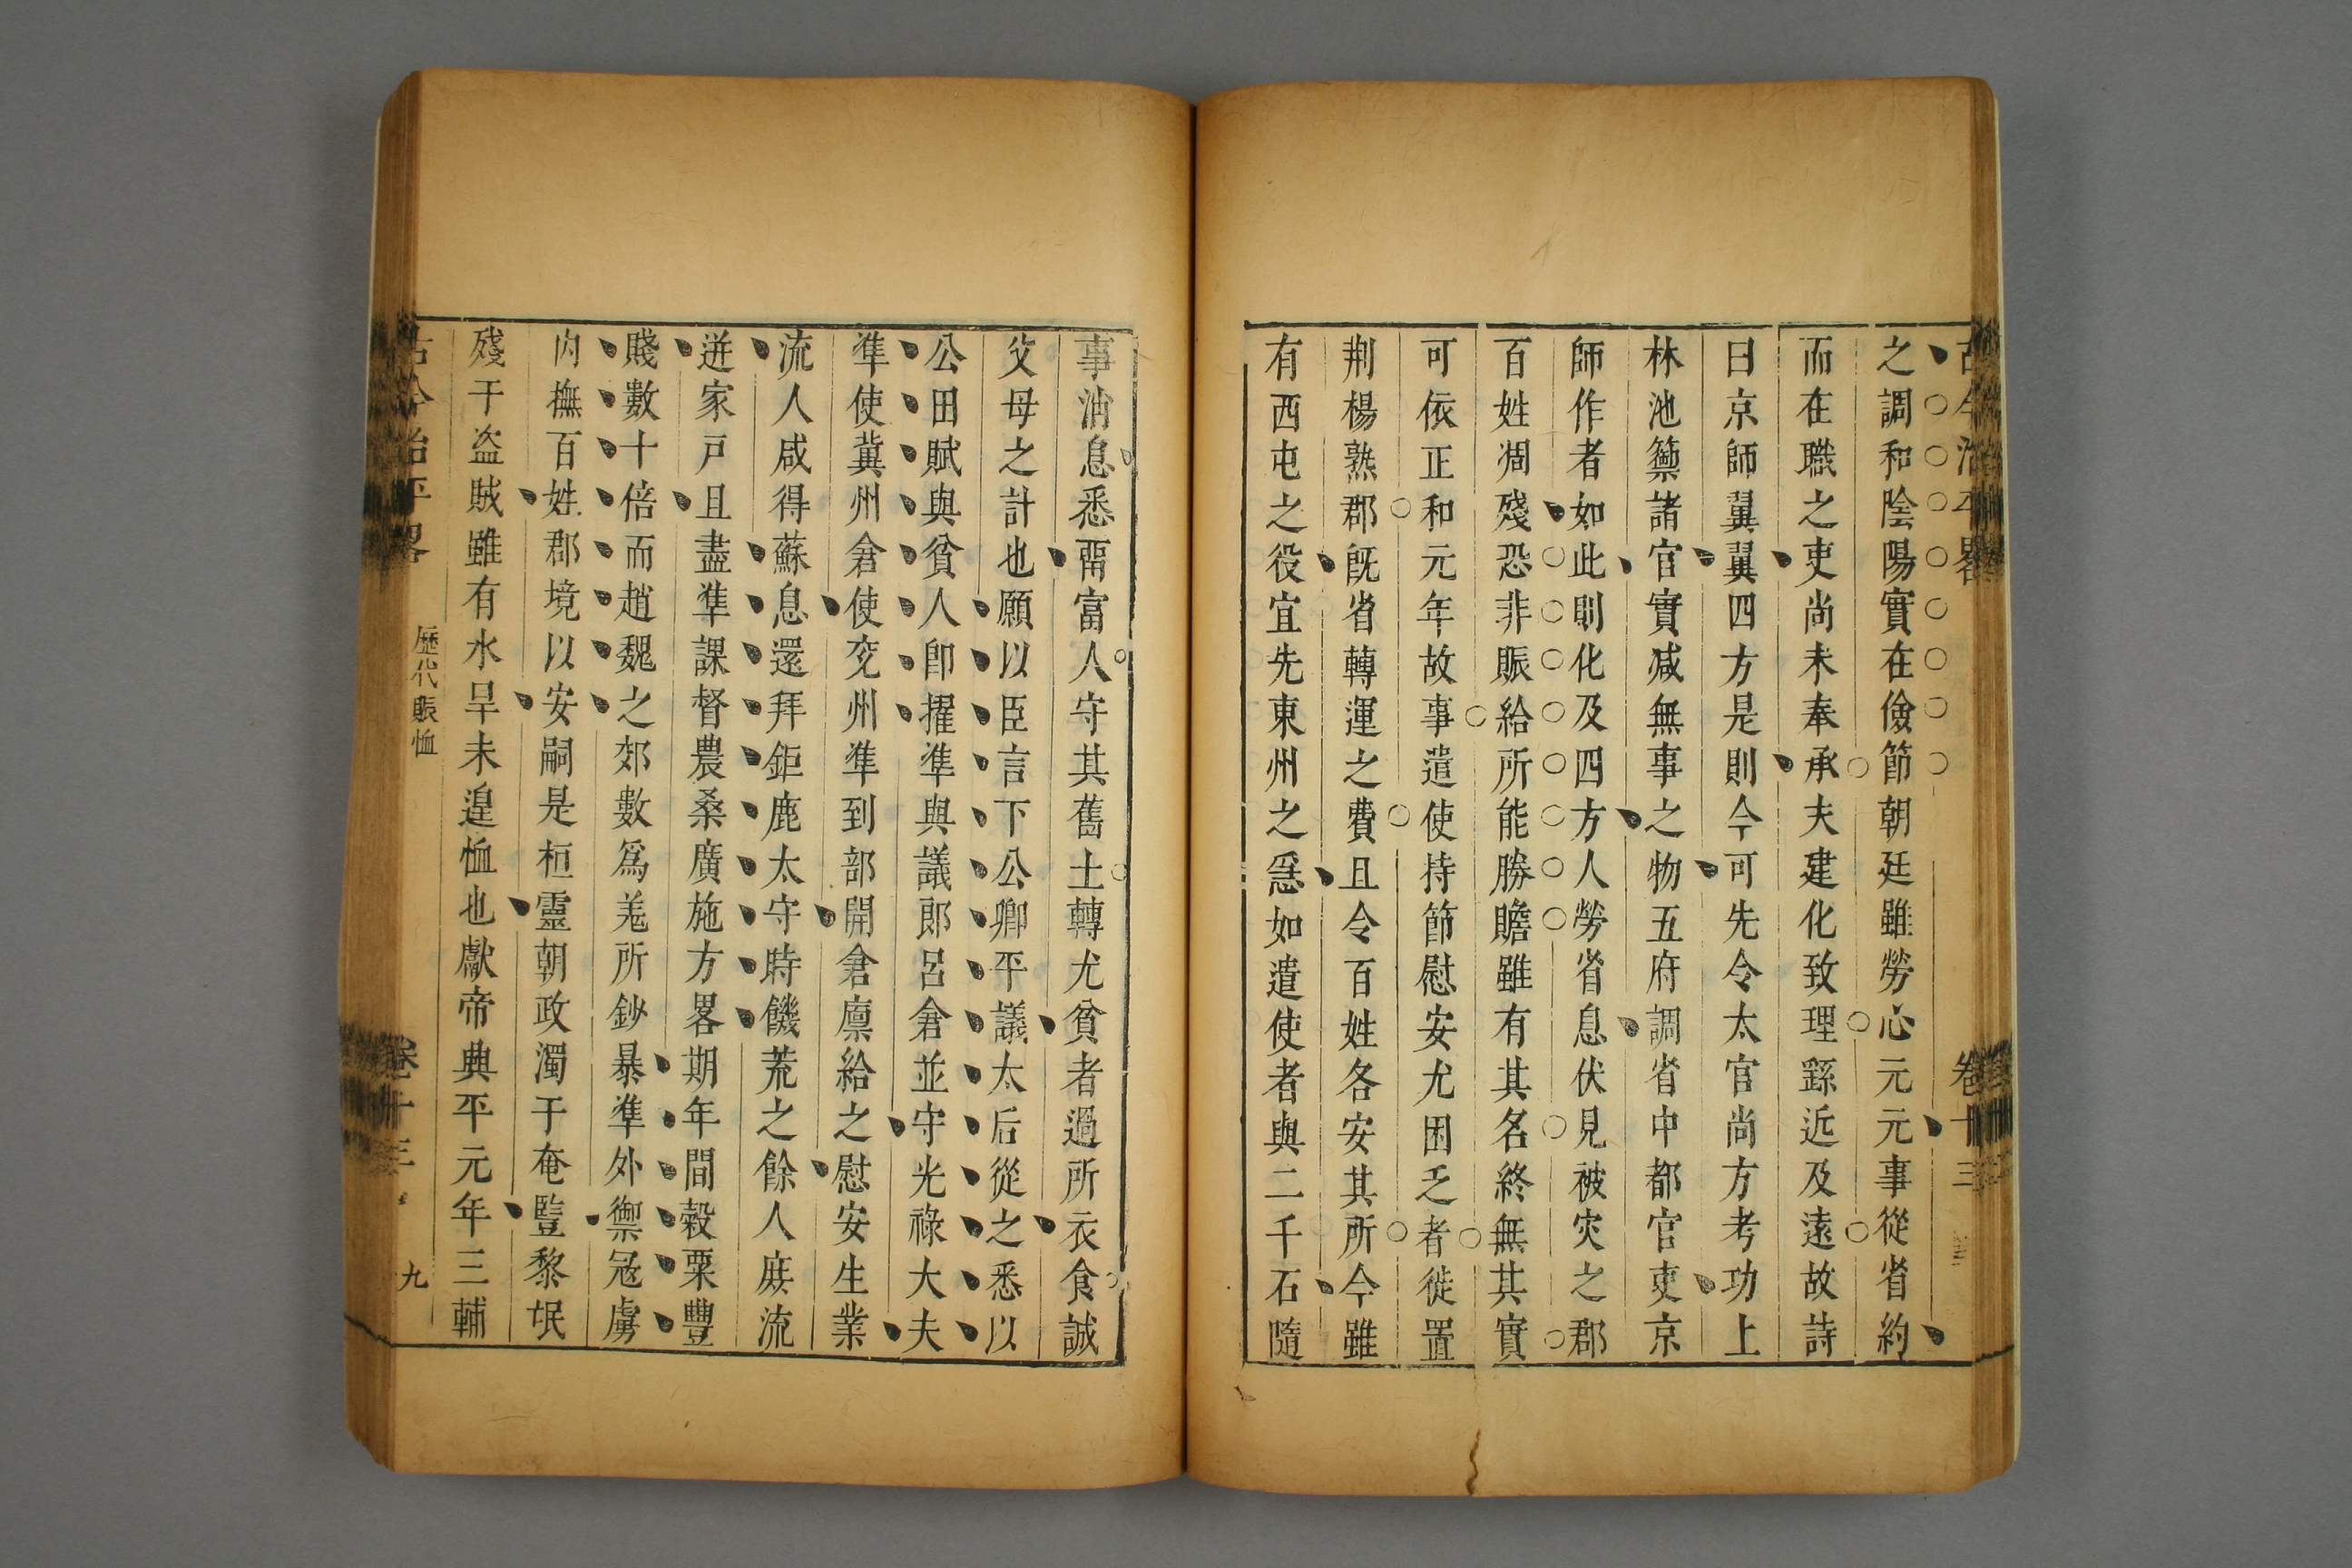 古今治平畧 卷十三
之調和陰陽實在儉節朝廷雖勞心元元事從省約
而在職之吏尚未奉承夫建化致理繇近及遠故詩
曰京師翼翼四方是則今可先令太官尚方考功上
林池籞諸官實減無事之物五府調省中都官吏京
師作者如此則化及四方人勞省息伏見被灾之郡
百姓凋殘恐非賑給所能勝贍雖有其名終無其實
可依正和元年故事遣使持節慰安尤困乏者徙置
荆楊熟郡既省轉運之費且令百姓各安其所今雖
有西屯之役宜先東州之急如遣使者與二千石隨
事消息悉畱富人守其舊土轉尤貧者過所衣食誠
父母之計也願以臣言下公卿平議太后從之悉以
公田賦與貧人即擢準與議郎呂倉並守光祿大夫
準使冀州倉使兗州準到部開倉廪給之慰安生業
流人咸得蘇息還拜鉅鹿太守時饑荒之餘人庻流
迸家戸且盡準課督農桑廣施方畧期年間穀粟豐
賤數十倍而趙魏之郊數爲羗所鈔暴準外禦冦虜
内撫百姓郡境以安嗣是桓靈朝政濁于奄豎黎氓
殘干盜賊雖有水旱未遑恤也獻帝典平元年三輔
古今治平畧 歷代賑恤 卷十三 九